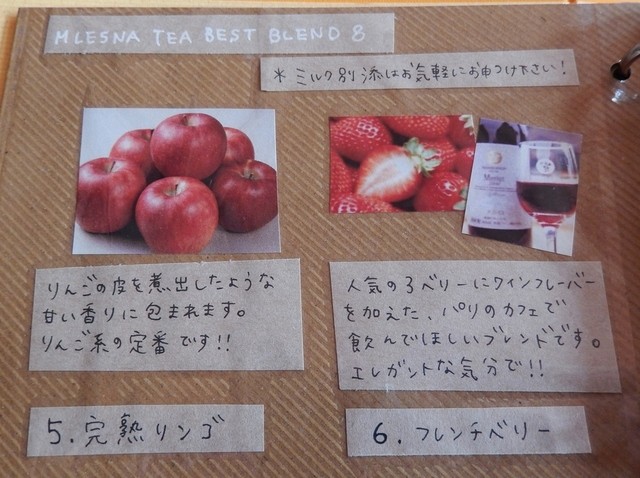 MLESNA TEA BEST BLEND 8
*ミルク別添はお気軽にお申つけ下さい!
りんごの皮を煮出したような
甘い香りに包まれます。
りんご系の定番です!!
5.完熟リンゴ
人気の3ベリーにワインフレーバー
を加えた、パリのカフェで
飲んでほしいブレンドです。
エレガントな気分で!!
6.フレンチベリー